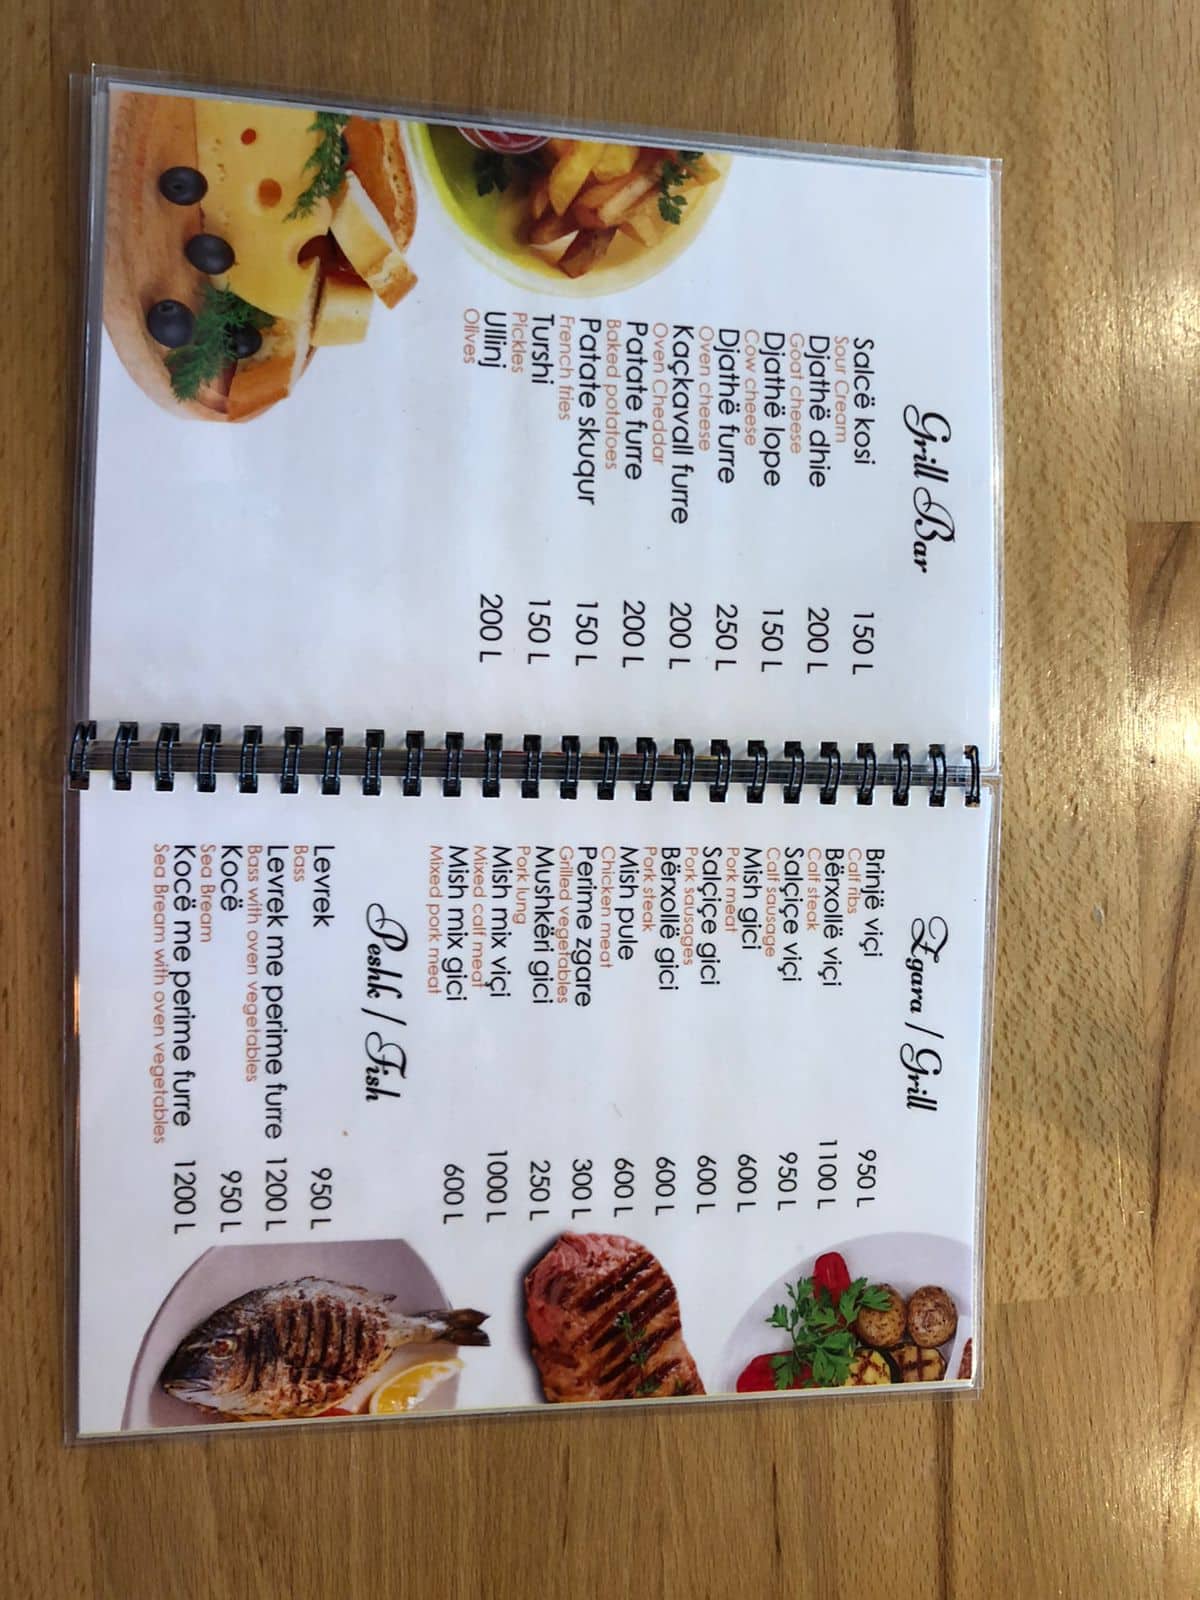 Grill Bar
Salcë kosi 150 L
Sour Cream
Djathë dhie 200 L
Goat cheese
Djathë lope 150 L
Cow cheese
Djathë furre 250 L
Oven cheese
Kaçkavall furre 200 L
Oven Cheddar
Patate furre 200 L
Baked potatoes
Patate skuqur 150 L
French fries
Turshi 150 L
Pickles
Ullinj 200 L
Olives
Zgara / Grill
Brinjë viçi 950 L
Calf ribs
Bërxollë viçi 1100 L
Calf steak
Salçiçe viçi 950 L
Calf sausage
Mish gici 600 L
Pork meat
Salçiçe gici 600 L
Pork sausages
Bërxollë gici 600 L
Pork steak
Mish pule 600 L
Chicken meat
Perime zgare 300 L
Grilled vegetables
Mushkëri gici 250 L
Pork lung
Mish mix viçi 1000 L
Mixed calf meat
Mish mix gici 600 L
Mixed pork meat
Peshk / Fish
Levrek 950 L
Bass
Levrek me perime furre 1200 L
Bass with oven vegetables
Kocë 950 L
Sea Bream
Kocë me perime furre 1200 L
Sea Bream with oven vegetables